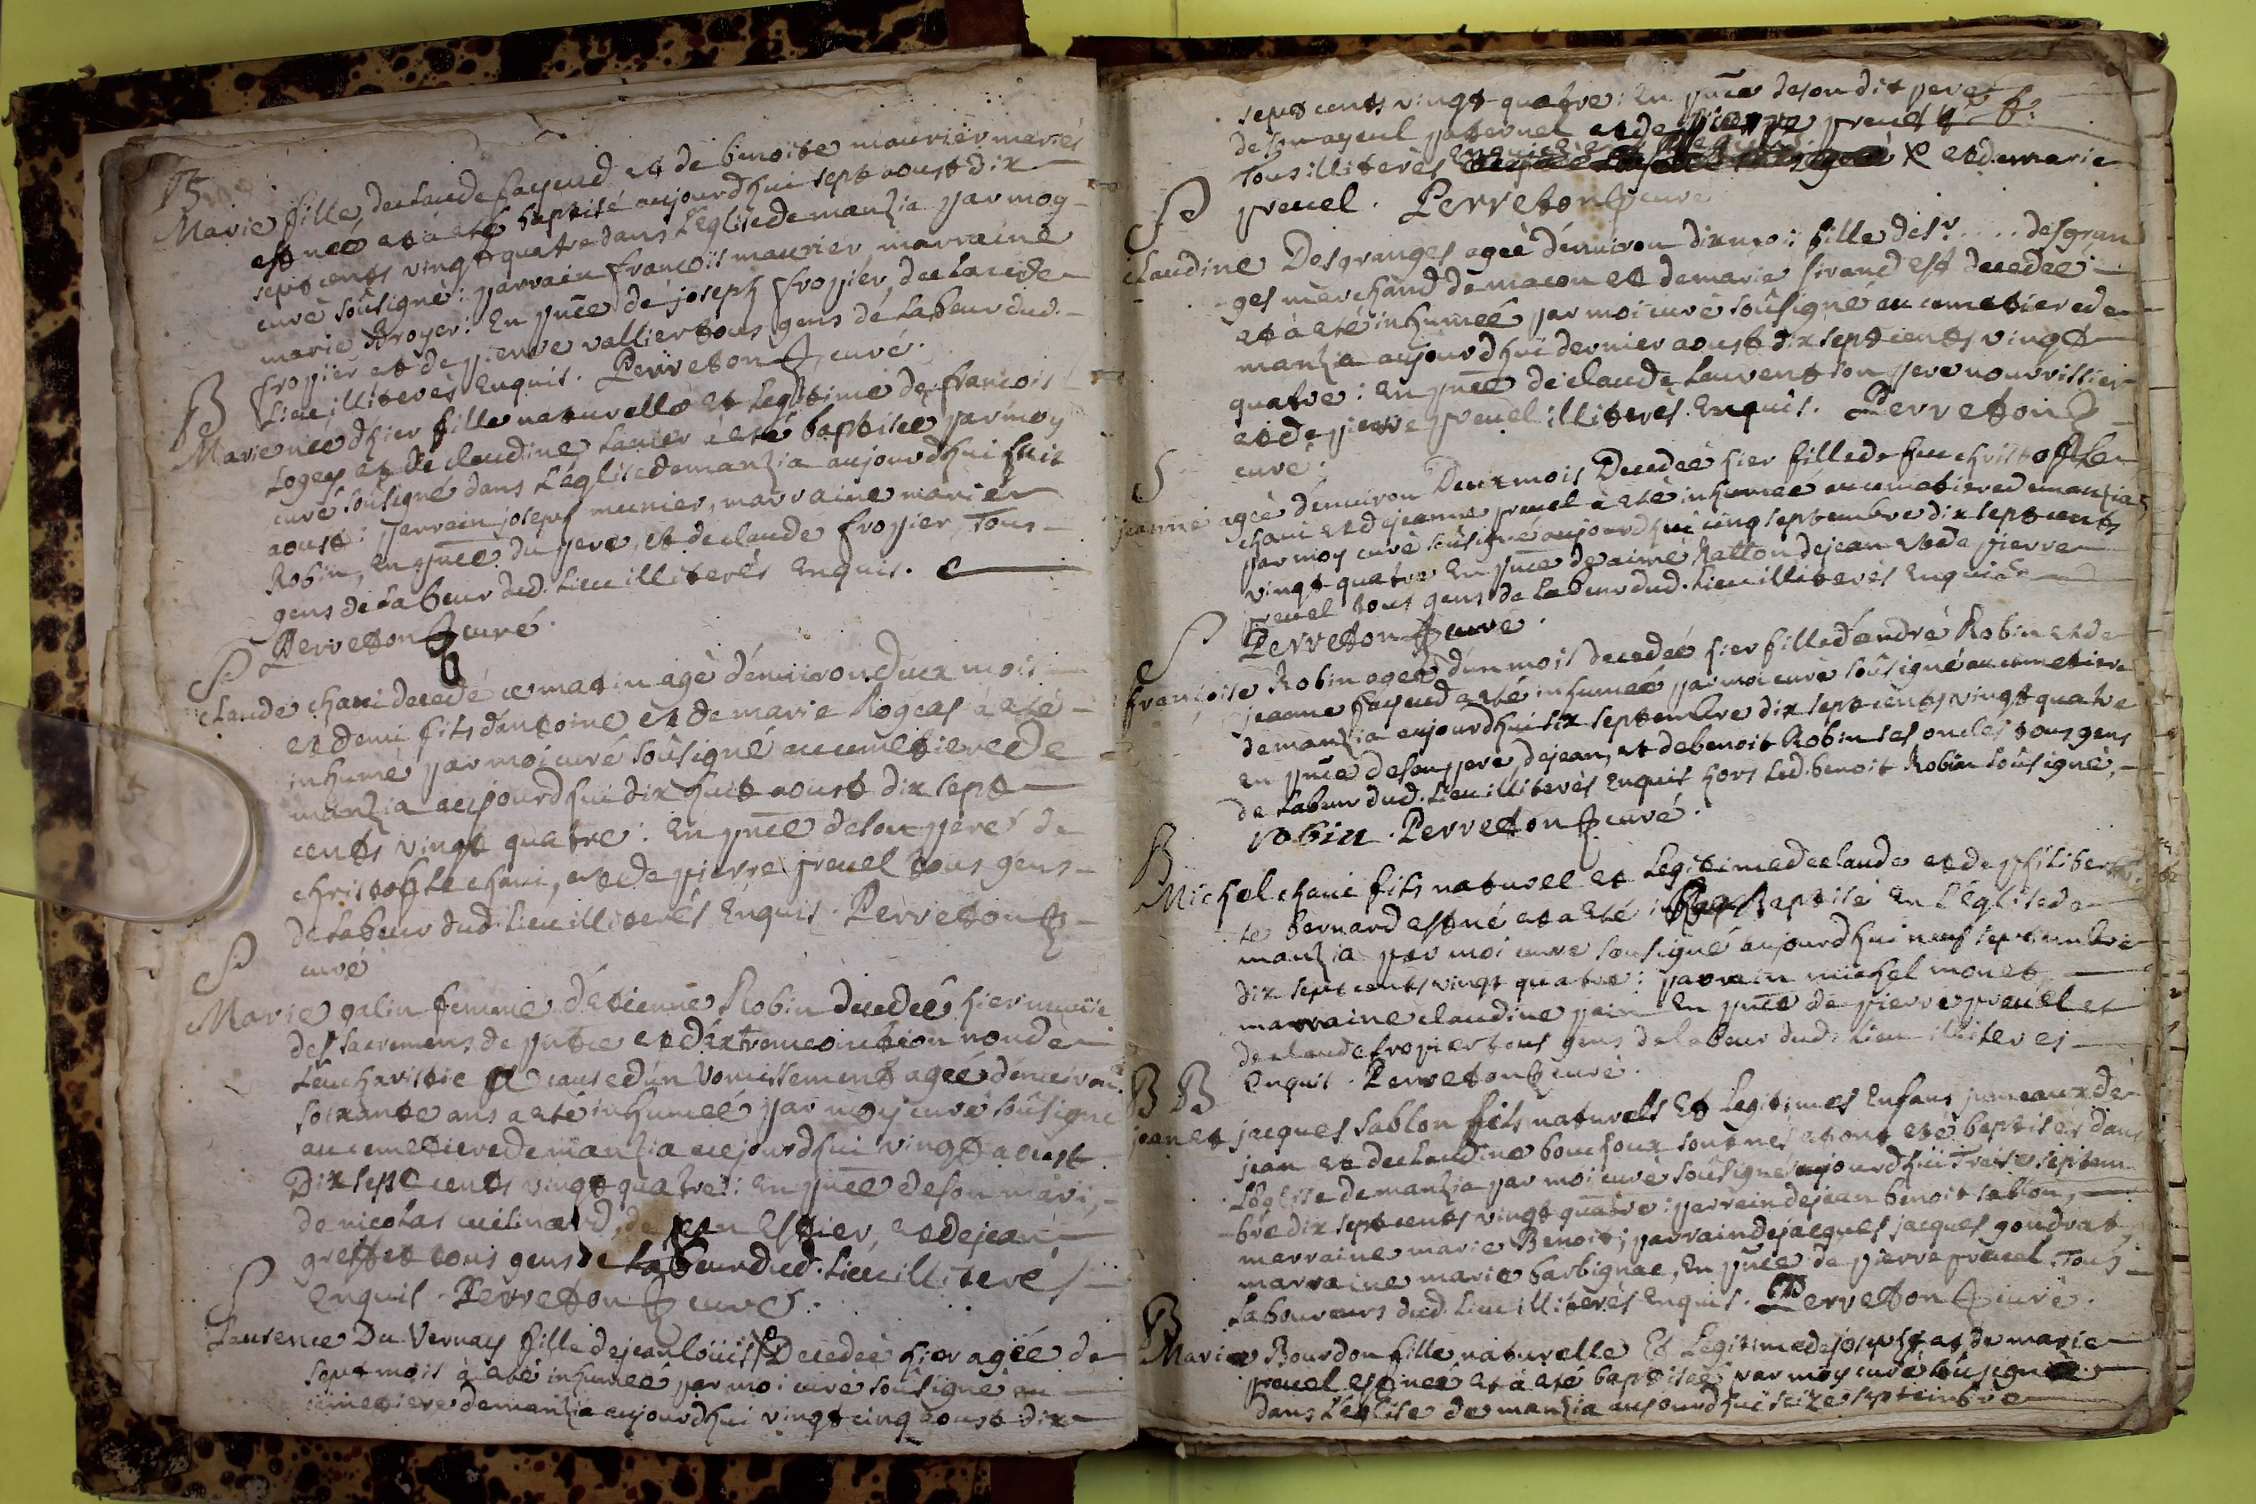 B
Marie fille de claude fayeud et de benoite maurier mariés
est neé et à eté baptisé aujourdhui sept aoust dix
sept cents vingt quatre dans L'eglise de manzia par moy
curé soûsigné: parrain françois maurier, marraine
marie Broyer: En pn̄ce de joseph fropier, de claude
fropier et de pierre vallier tous gens de Labeur dud.
Lieu illiterés Enquis. Perreton curé.
B
Marie née d'hier fille naturelle et Legitime de françois
Logey et de claudine Lanier à eté baptisée par moy
curé soûsigné dans L'église de manzia aujourdhui huit
aoust: Parrain joseph munier, marraine marie
Robin, en pn̄ce du pere, et de claude fropier, Tous
gens de Labeur dud. Lieu illiterés Enquis.
Perreton curé.
S
claude chani decedé ce matin agé d'environ deux mois
et demi fils d'antoine et de marie Rogeas à eté
inhumé par moi curé soûsigné au cemetiere De
manzia aujourdhui dix huit aoust dix sept
cents vingt quatre: En pn̄ce de son pere de
christophle chani, et de pierre preuel tous gens
de Labeur dud. Lieu illiterés Enquis. Perreton
curé
S
Marie galin femme d'etienne Robin decedeé hier munie
des sacremens de pn̄tce et d'extremeonction non de
L'eucharistie à cause d'un Vomissement ageé d'environ
soixante ans a eté inhumeé par moy curé soûsigné
au cemetiere de manzia aujourdhui vingt aoust
Dix sept cents vingt quatre: En pn̄ce de son mari,
de nicolas cuilinard, de jean Estier, et de jean
greffet tous gens de Labeur dud. Lieu illiterés
Enquis. Perreton curé.
S
Laurence Du Vernay fille de jean louïs Decedeé hier agée de
sept mois à eté inhumeé par moi curé soûsigné au
cemetiere de manzia aujourdhui vingt cinq aoust dix
sept cents vingt quatre: En pn̄ce de son dit pere
de son ayeul paternel et de pierre preuel
Tous illiterés et de marie
preuel. Perreton curé
S
claudine Desgranges ageé d'environ dix moi: fille de sr .... desgran
ges merchand de macon et de marie sirand est decedeé
et à eté inhumeé par moi curé soûsigné au cemetiere de
manzia aujourdhui dernier aoust dix sept cents vingt
quatre: En pn̄ce de claude Laurent son pere nourrissier
et de pierre preuel illiterés Enquis. Perreton
curé.
S
jeanne ageé d'environ Deux mois Decedeé hier fille de feu christophle
chani et de jeanne preuel à eté inhumeé au cemetiere de manzia
par moy curé soûsigné aujourdhui cinq septembre dix sept cents
vingt quatre En pn̄ce de aimé Ratton de jean et de pierre
preuel tous gens de Labeur dud. Lieu illiterés Enquis
Perreton curé.
S
françoise Robin ageé d'un mois decedeé hier fille d'andré Robin et de
jeanne fayeud a eté inhumeé par moi curé soûsigné au cemetiere
de manzia aujourdhui six septembre dix sept cents vingt quatre
en pn̄ce de son pere, de jean, et de benoit Robin ses oncles tous gens
de Labeur dud. Lieu illiterés Enquis hors led. benoit Robin soûsigné,
robin. Perreton curé.
B
Michel chani fils naturel et Legitime de claude et de philiber
te bernard est né et a eté Baptisé En L'église de
manzia par moi curé soûsigné aujourdhui neuf septembre
dix sept cents vingt quatre: parrain michel monet,
marraine claudine pain En pn̄ce de pierre preuel et
de claude fropier tous gens de labeur dud. Lieu illiterés
Enquis. Perreton curé.
B B
jean et jacques sablon fils naturels Et Legitimes Enfans jumeaux de
jean et de claudine bouchoux sont nés et ont eté baptisés dans
L'eglise de manzia par moi curé soûsigné aujourdhui Treize septem
bre dix sept cents vingt quatre: parrain de jean benoit sablon,
marraine marie Benoit; parrain de jacques jacques goudrat,
marraine marie barbignac, En pn̄ce de pierre preuel. Tous
Laboureurs dud. Lieu illiterés Enquis. Perreton curé.
B
Marie Bourdon fille naturelle Et Legitime de joseph et de marie
preuel est neé et à eté baptiseé par moy curé soûsigné
dans L'église de manzia aujourdhui seize septembre